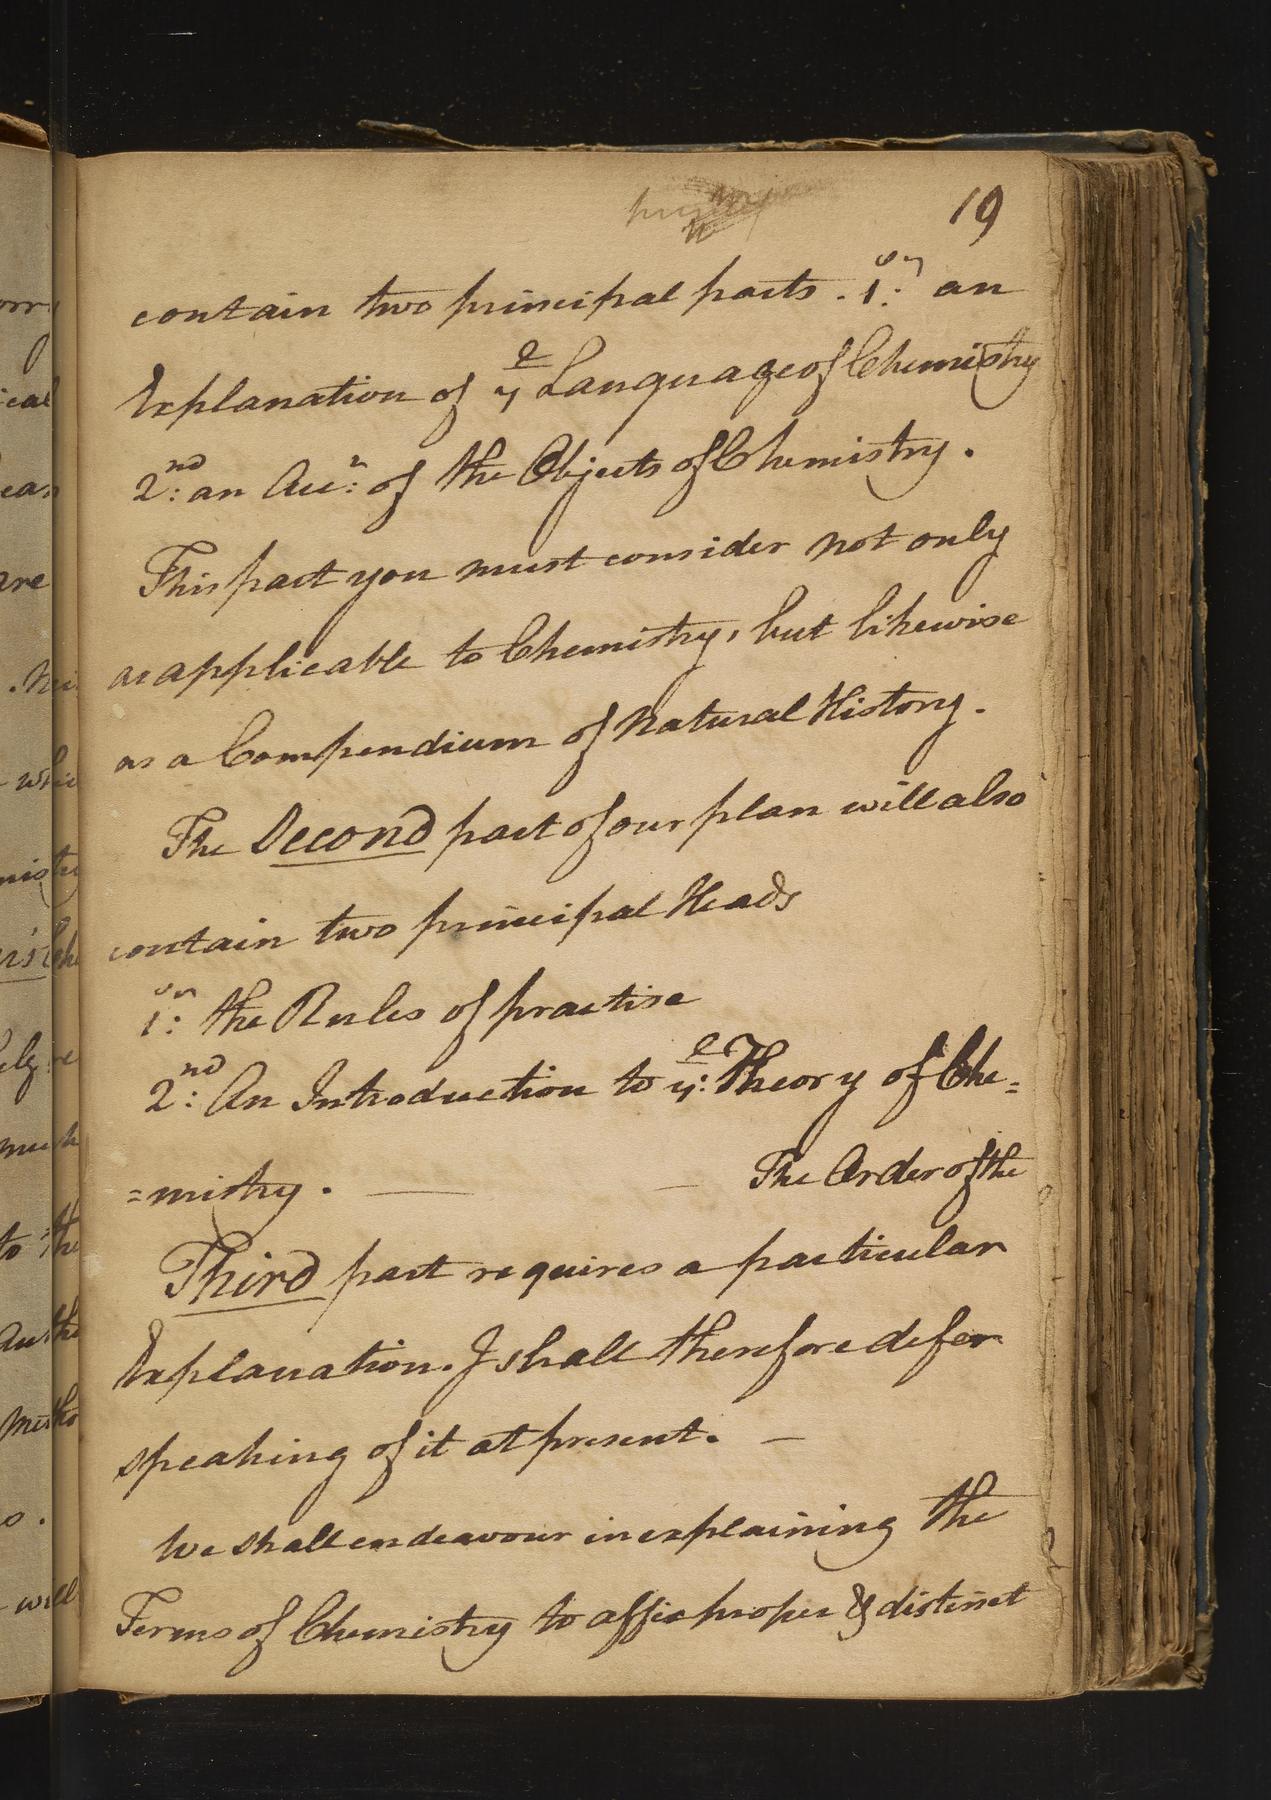 19
contain two principal parts. 1: an
Explanation of ye Language of Chemistry
2nd: an Accn: of the Objects of Chemistry.
This part you must consider not only
as applicable to Chemistry, but likewise
as a Compendium of Natural History.
The Second part of our plan will also
contain two principal Heads
1: the Rules of practise
2nd: An Introduction to ye: Theory of Che=
=mistry. — — The Order of the
Third part requires a particular
Explanation. I shall therefore defer
speaking of it at present. —
We shall endeavour in explaining the
Terms of Chemistry to affix proper & distinct